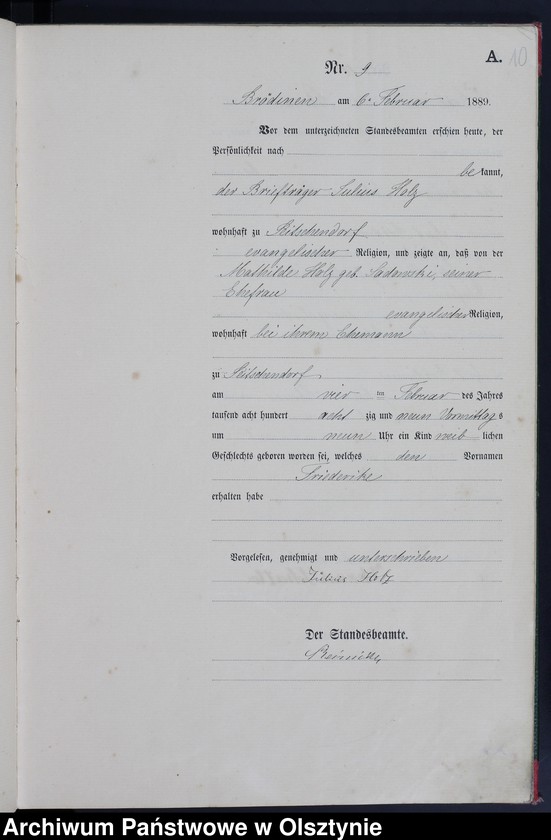 A. 10
Nr. 9
Brödinen am 6. Februar 1889.
Vor dem unterzeichneten Standesbeamten erschien heute, der
Persönlichkeit nach
be kannt,
der Briefträger Julius Holz
wohnhaft zu
evangelischer Religion, und zeigte an, daß von der
Mathilde Holz geb. Sadowski, seiner
Ehefrau
evangelischer Religion,
wohnhaft bei ihrem Ehemann
zu
am vier ten Februar des Jahres
tausend acht hundert acht zig und neun Vormittag s
um neun Uhr ein Kind weib lichen
Geschlechts geboren worden sei, welches den Vornamen
Friederike
erhalten habe
Vorgelesen, genehmigt und unterschrieben
Julius Holz
Der Standesbeamte.
Archiwum Państwowe w Olsztynie